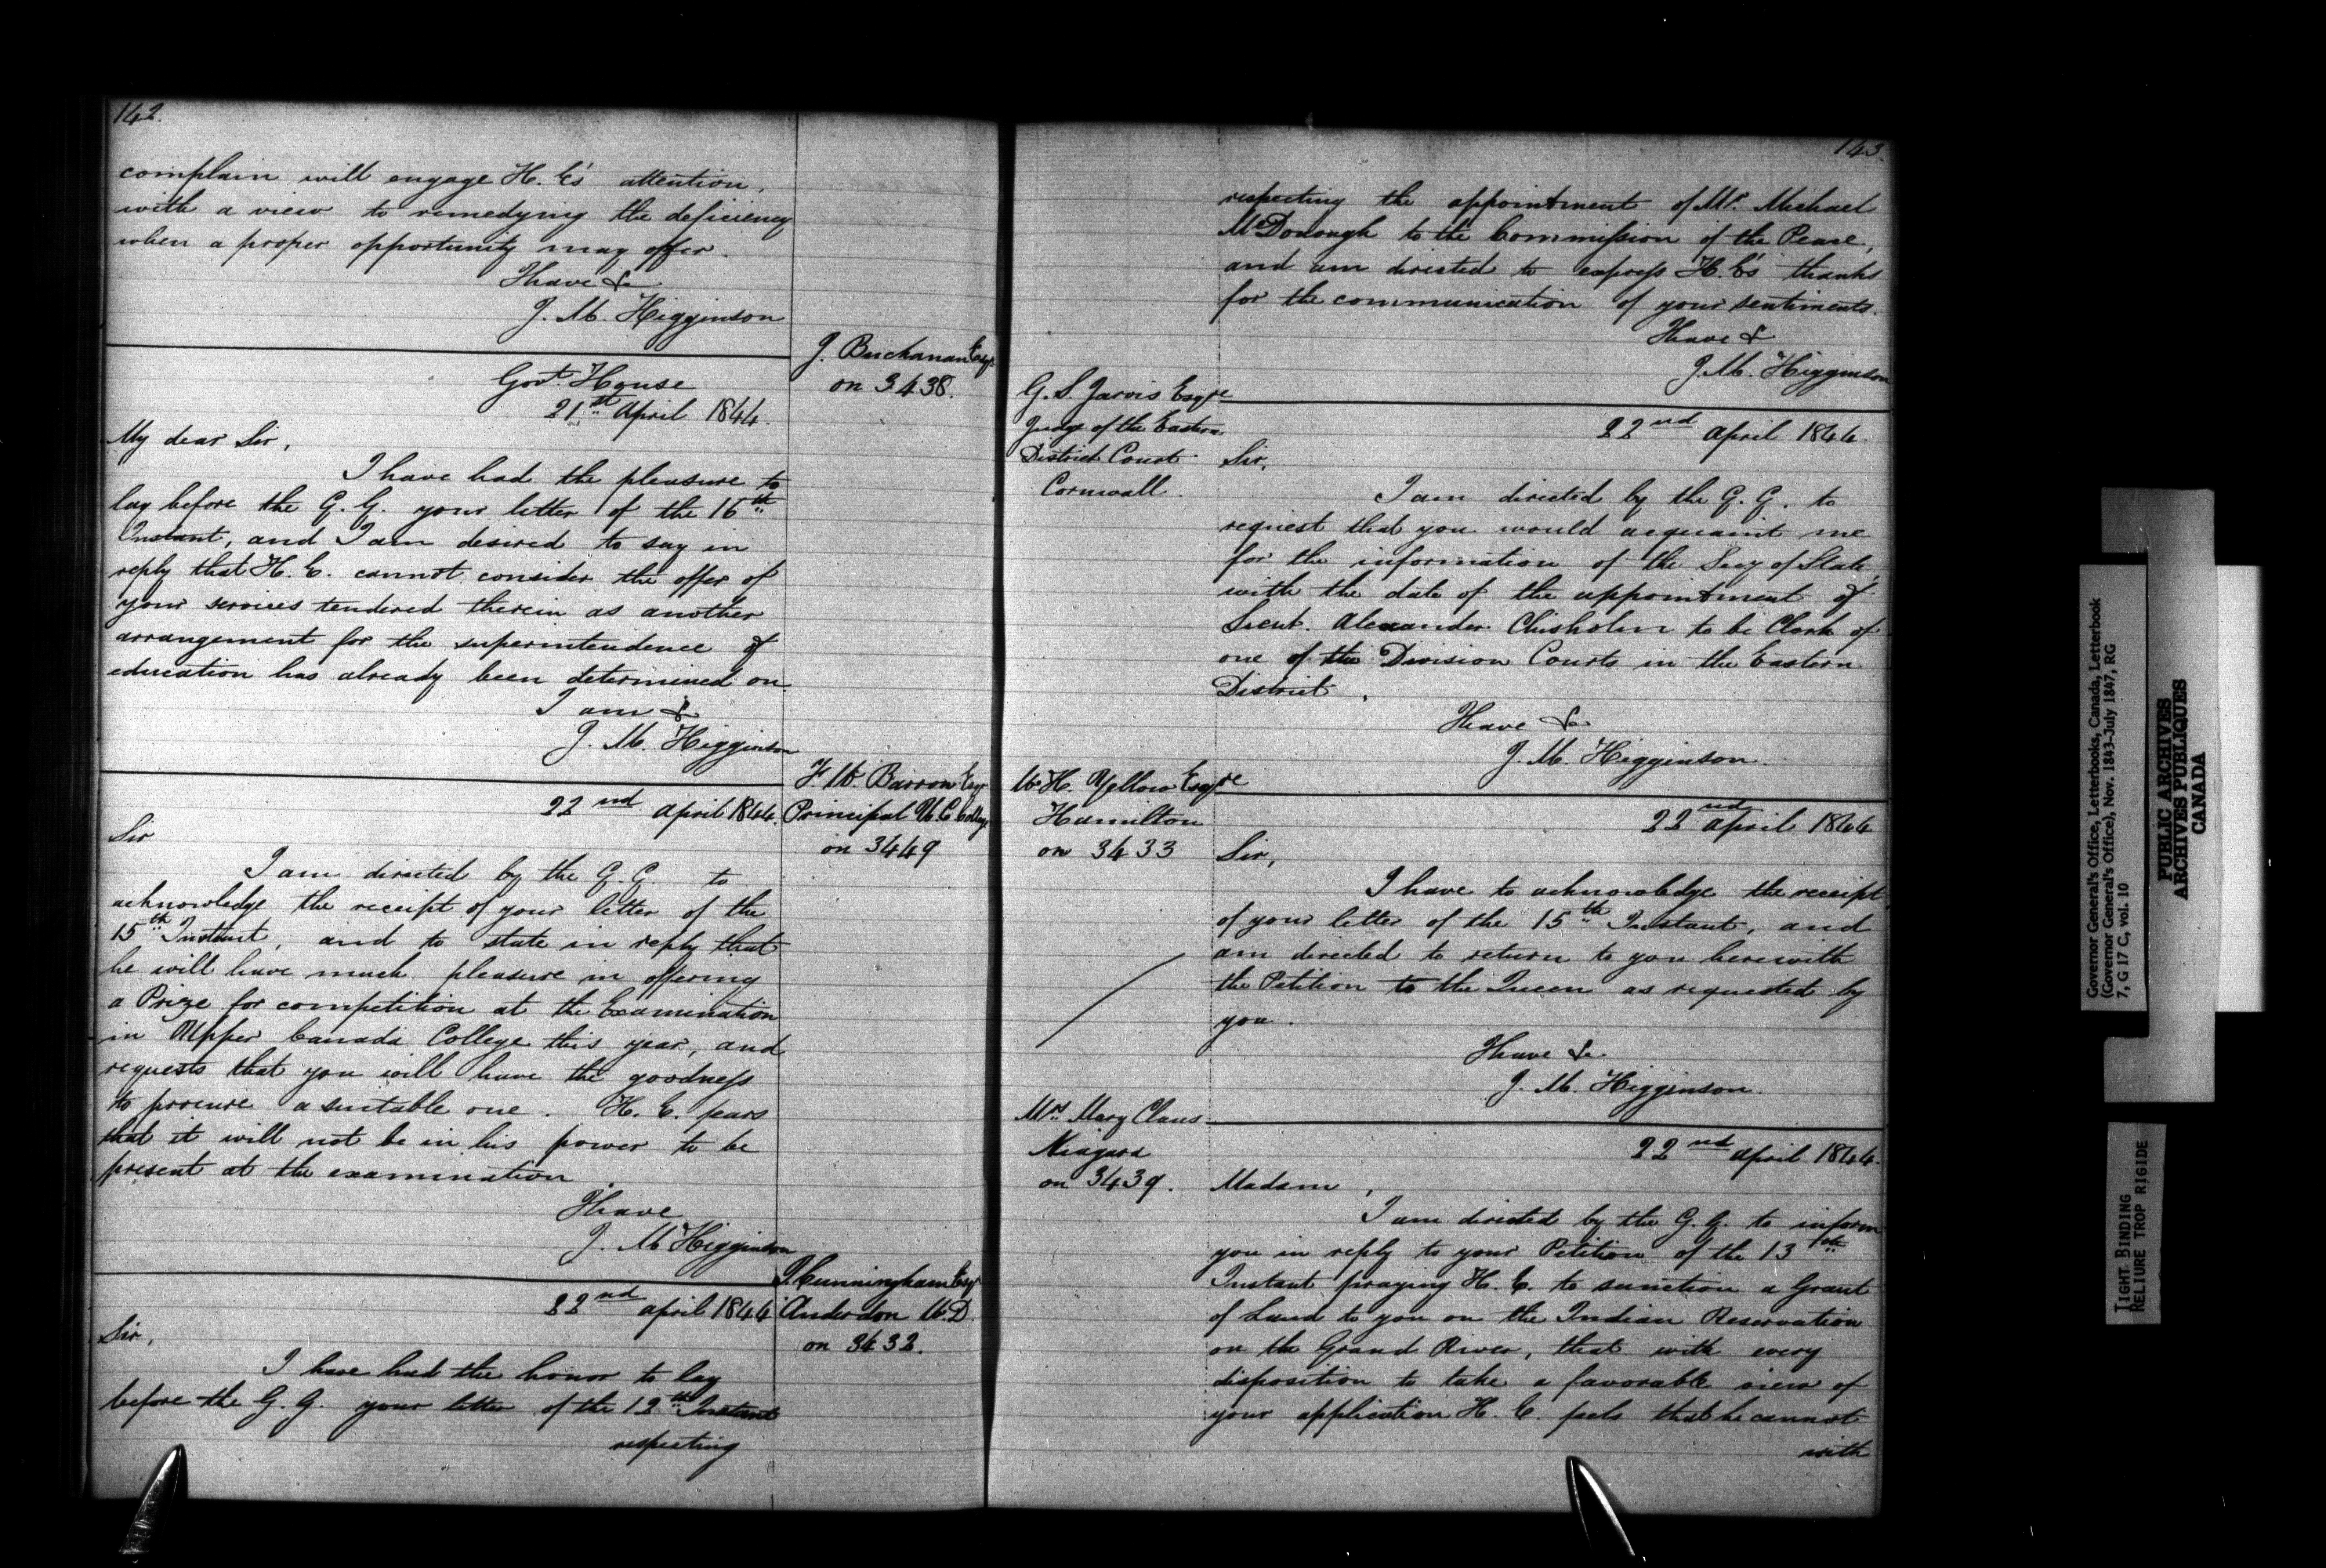 142.
complain will engage H. E's attention,
with a view to remedying the deficiency
when a proper opportunity may offer.
I have &c
J. M. Higginson
J. Buchanan Esqr
on 3438.
Govt. House
21st April 1844.
My dear Sir,
I have had the pleasure to
lay before the G. G. your letter of the 16th
Instant, and I am desired to say in
reply that H. E. cannot consider the offer of
your services tendered therein as another
arrangement for the superintendence of
education has already been determined on.
I am &c
J. M. Higginson
F. W. Barron Esqr
Principal U. C. College
on 3449
22nd April 1844.
Sir
I am directed by the G. G. to
acknowledge the receipt of your letter of the
15th Instant, and to state in reply that
he will have much pleasure in offering
a Prize for competition at the Examination
in Upper Canada College this year, and
requests that you will have the goodness
to procure a suitable one. H. E. fears
that it will not be in his power to be
present at the examination
I have
J. M Higginson
Cunningham Esqr
Anderdon W. D.
on 3432.
22nd April 1844
Sir,
I have had the honor to lay
before the G. G. your letter of the 12th Instant
respecting
143.
respecting the appointment of Mr. Michael
McDonough to the Commission of the Peace,
and am directed to express H. E's thanks
for the communication of your sentiments.
I have &
J. M. Higginson
G. S. Jarvis Esqre
Judge of the Eastern
District Court
Cornwall.
22nd April 1844.
Sir,
I am directed by the G. G. to
request that you would acquaint me
for the information of the Secy of State,
with the date of the appointment of
Lieut. Alexander Chisholm to be Clerk of
one of the Division Courts in the Eastern
District.
I have &c
J. M. Higginson.
W. H. Esqre
Hamilton
on 3433
22nd April 1844
Sir,
I have to acknowledge the receipt
of your letter of the 15th Instant, and
am directed to return to you herewith
the Petition to the Queen as requested by
you.
I have &c
J. M. Higginson.
Mrs. Mary Claus
Niagara
on 3439.
22nd April 1844.
Madam,
I am directed by the G. G. to inform
you in reply to your Petition of the 13th
Instant praying H. E. to sanction a Grant
of Land to you on the Indian Reservation
on the Grand River, that with every
disposition to take a favorable view of
your application H. E. feels that he cannot
with
Governor General's Office, Letterbooks, Canada, Letterbook
(Governor General's Office), Nov. 1843-July 1847, RG
7, G 17 C, vol. 10
PUBLIC ARCHIVES
ARCHIVES PUBLIQUES
CANADA
TIGHT BINDING
RELIURE TROP RIGIDE